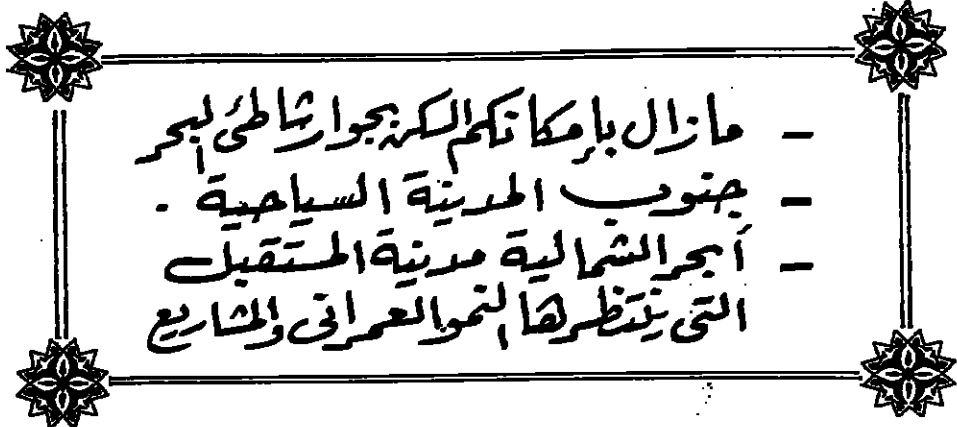 - مازال بإمكانكم السكن بجوار شاطئ البحر
- جنوب المدينة السياحية .
- أبحر الشمالية مدينة المستقبل
التى ينتظرها النمو العمرانى والمشاريع